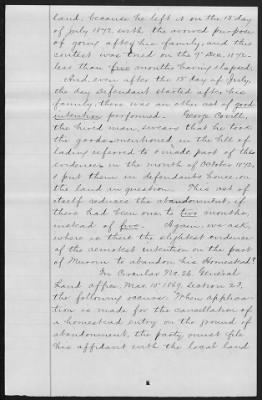 land, because he left it on the 15 day
of July 1872 with the avowed purpose
of going after his family, and this
contest was tried on the 9" Dec. 1872 -
less than five months having elapsed.
And even after the 15" day of July,
the day defendant started after his
family, there was an other act of good
intention performed. George Covill,
the hired man, swears that he took
the goods mentioned in the bill of
lading referred to & made part of this
evidence in the month of October 1872,
& put them in defendants house on
the land in question. This act of
itself reduces the abandonment, if
there had been one, to two months,
instead of five. Again we ask,
where is there the slightest evidence
of the remotest intention on the part
of to abandon his Homestead?
In Circular No. 26. General
Land office, Mar. 10" 1869, section 23,
the following occurs: "When applica-
tion is made for the cancellation of
a homestead entry on the ground of
abandonment, the party must file
his affidavit with the local land